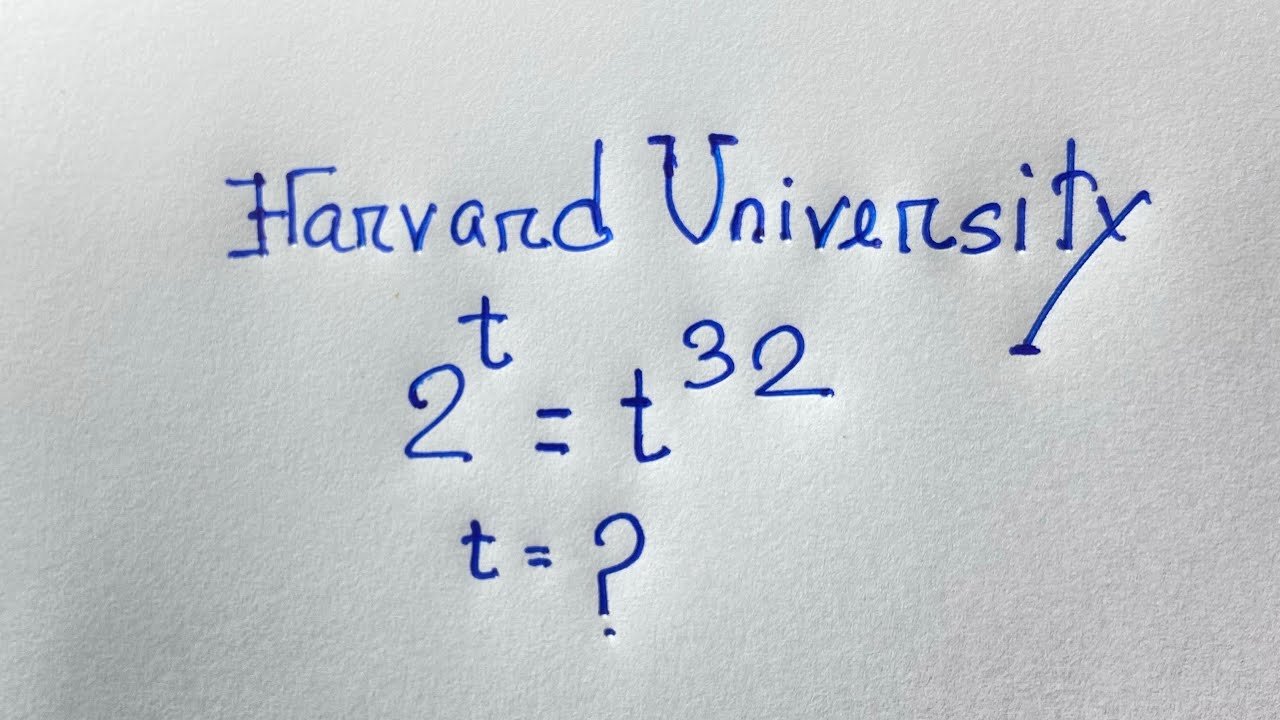 Harvard University
2^t = t^32
t = ?